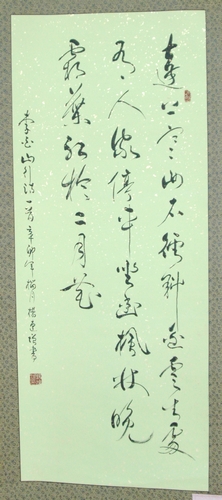 遠上寒山石徑斜白雲生處
有人家停車坐愛楓林晚
霜葉紅於二月花
山行詩一首辛卯年梅月書